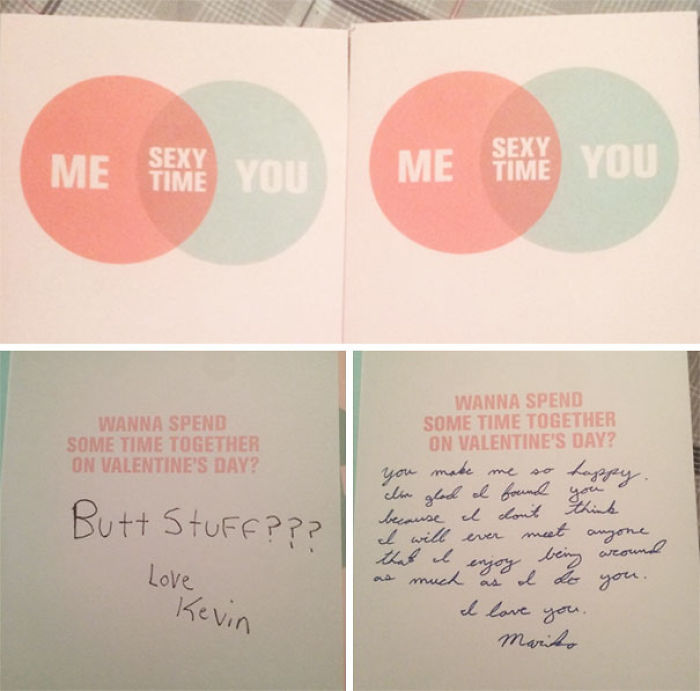 ME
SEXY
TIME
YOU
ME
SEXY
TIME
YOU
WANNA SPEND
SOME TIME TOGETHER
ON VALENTINE'S DAY?
Butt Stuff???
Love
Kevin
WANNA SPEND
SOME TIME TOGETHER
ON VALENTINE'S DAY?
you make me so happy.
I'm glad I found you
because I don't think
I will ever meet anyone
that I enjoy being around
as much as I do you.
I love you.
Mariko